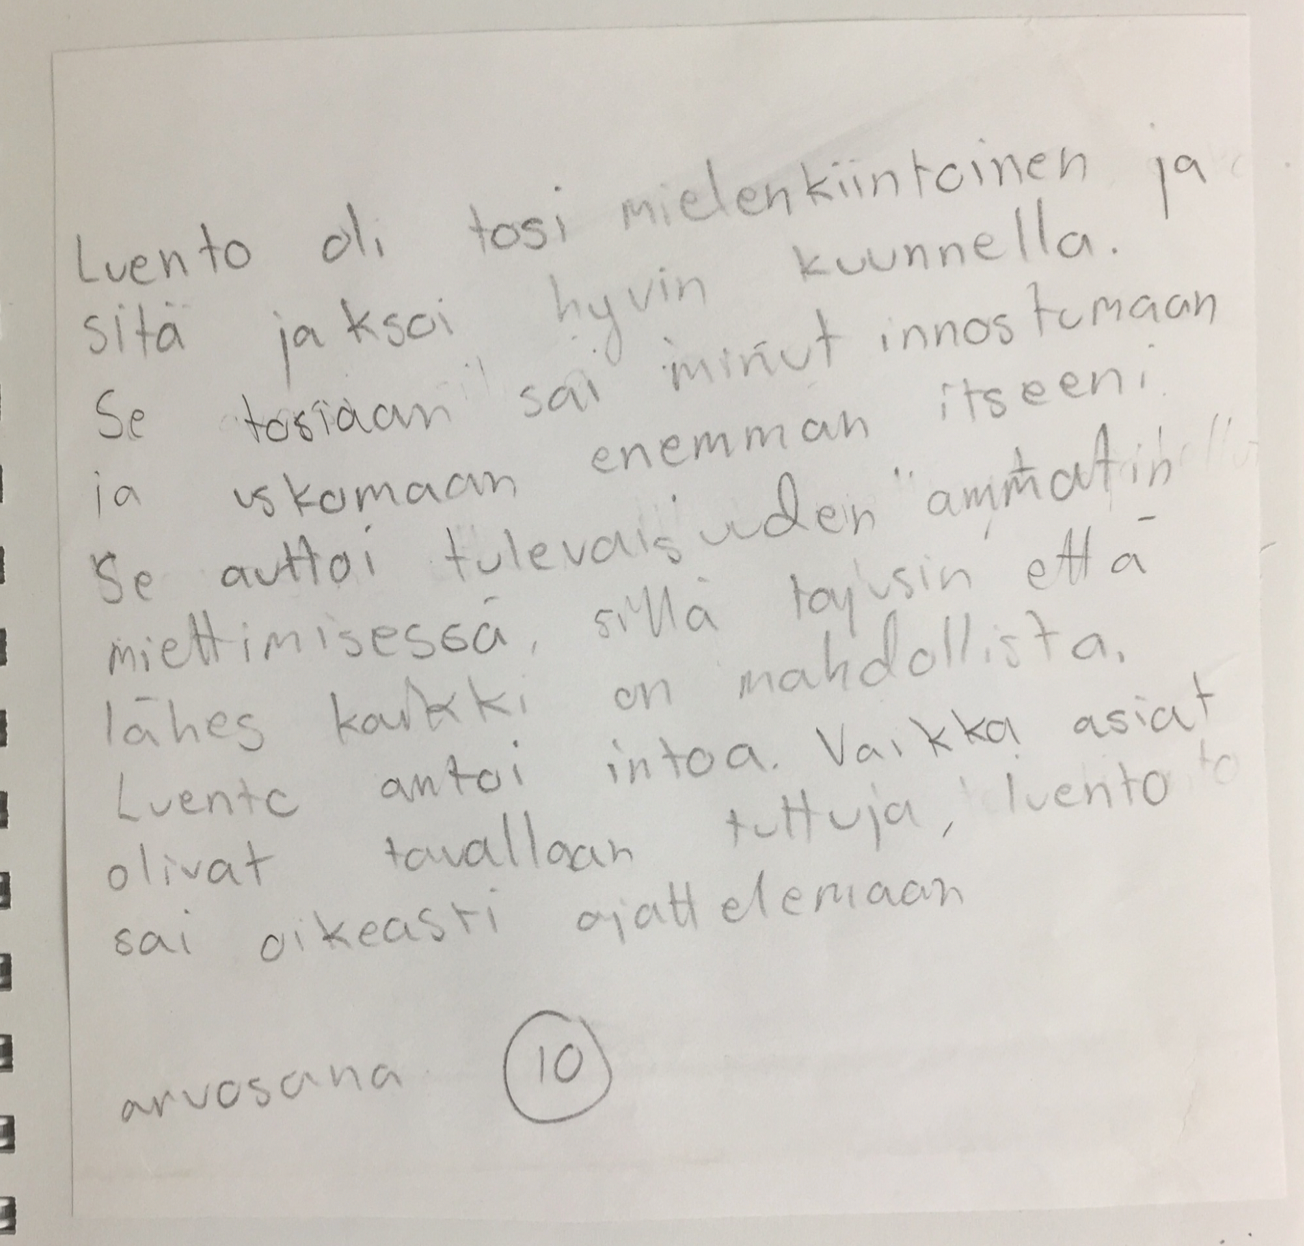 Luento oli tosi mielenkiintoinen ja
sitä jaksoi hyvin kuunnella.
Se tosiaan sai minut innostumaan
ja uskomaan enemmän itseeni.
Se auttoi tulevaisuuden "ammatin"
miettimisessä, sillä tajusin että
lähes kaikki on mahdollista.
Luento antoi intoa. Vaikka asiat
olivat tavallaan tuttuja, luento
sai oikeasti ajattelemaan
arvosana 10